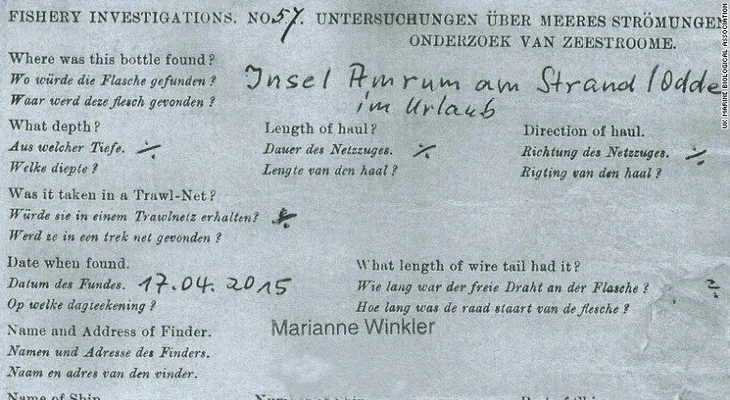 FISHERY INVESTIGATIONS. NO 57. UNTERSUCHUNGEN ÜBER MEERES STRÖMUNGEN
ONDERZOEK VAN ZEESTROOME.
Where was this bottle found?
Wo würde die Flasche gefunden?
Waar werd deze flesch gevonden?
Insel Amrum am Strand / Odde
im Urlaub
What depth?
Aus welcher Tiefe. ·/·
Welke diepte?
Length of haul?
Dauer des Netzzuges. ·/·
Lengte van den haal?
Direction of haul.
Richtung des Netzzuges. ·/·
Rigting van den haal?
Was it taken in a Trawl-Net?
Würde sie in einem Trawlnetz erhalten?
Werd ze in een trek net gevonden?
Date when found.
Datum des Fundes. 17.04.2015
Op welke dagteekening?
What length of wire tail had it?
Wie lang war der freie Draht an der Flasche? ?
Hoe lang was de raad staart van de flesche?
Name and Address of Finder.
Namen und Adresse des Finders.
Naam en adres van den vinder.
Marianne Winkler
Name of Ship
UK MARINE BIOLOGICAL ASSOCIATION